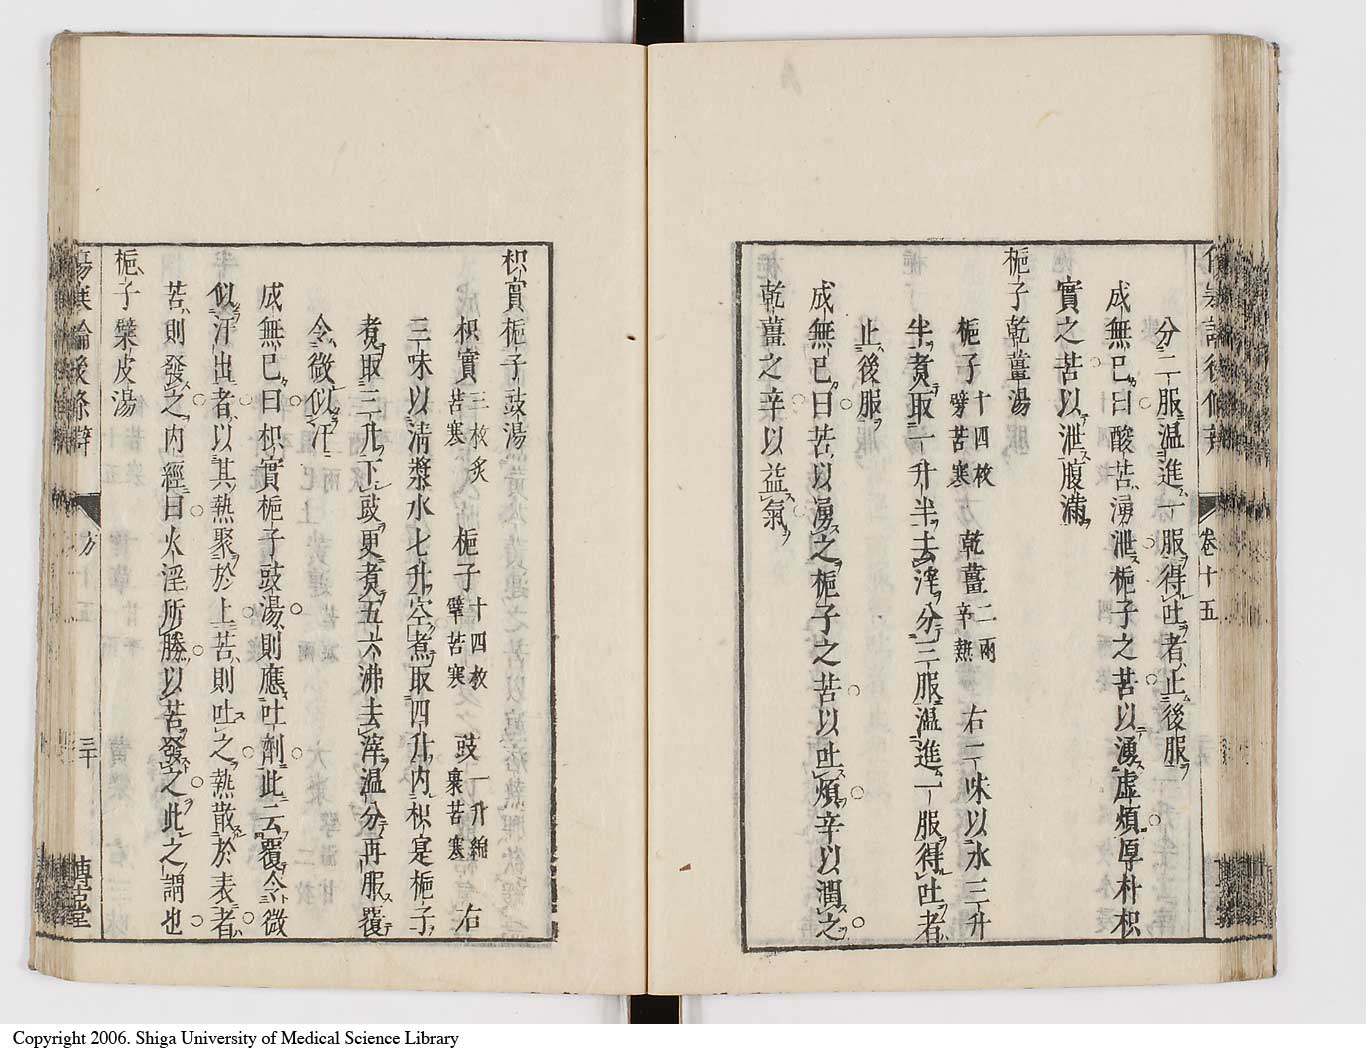 分二服温進一服得吐者止後服
成無已曰酸苦湧泄梔子之苦以湧虚煩厚朴枳
實之苦以泄腹滿
梔子乾薑湯
梔子十四枚擘苦寒 乾薑二兩辛熱 右二味以水三升
半煮取一升半去滓分三服温進一服得吐者
止後服
成無已曰苦以湧之梔子之苦以吐煩辛以潤之
乾薑之辛以益氣
卷十五
枳實梔子豉湯
枳實三枚炙苦寒 梔子十四枚擘苦寒 豉一升綿裹苦寒 右
三味以清漿水七升空煮取四升内枳寔梔子
煮取二升下豉更煮五六沸去滓温分再服覆
令微似汗
成無已曰枳實梔子豉湯則應吐劑此云覆令微
似汗出者以其熱聚於上苦則吐之熱散於表者
苦則發之内經曰火淫所勝以苦發之此之謂也
梔子檗皮湯
傷寒論後條辯 方 三十 博古堂
Copyright 2006. Shiga University of Medical Science Library